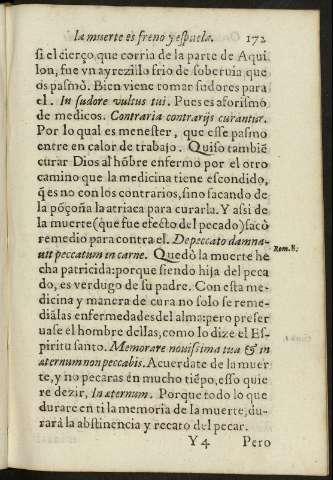 la muerte es freno y espuela. 172
si el cierço que corria de la parte de Aqui
lon, fue vn ayrezillo frio de soberuia que
os pasmò. Bien viene tomar sudores para
el. In sudore vultus tui. Pues es aforismo
de medicos. Contraria contrarijs curantur.
Por lo qual es menester, que esse pasmo
entre en calor de trabajo. Quiso tambiẽ
curar Dios al hõbre enfermo por el otro
camino que la medicina tiene escondido,
q̃ es no con los contrarios, sino sacando de
la põçoña la atriaca para curarla. Y assi de
la muerte (que fue efecto del pecado) sacò
remedio para contra el. De peccato damna-
uit peccatum in carne. Quedò la muerte he
Rom. 8.
cha patricida: porque siendo hija del peca
do, es verdugo de su padre. Con esta me-
dicina y manera de cura no solo se reme-
diã las enfermedades del alma: pero preser
uase el hombre dellas, como lo dize el Es-
piritu santo. Memorare nouissima tua & in
æternum non peccabis. Acuerdate de la muer
te, y no pecaras en mucho tiẽpo, esso quie
re dezir, In æternum. Porque todo lo que
durare en ti la memoria de la muerte, du-
rarà la abstinencia y recato del pecar.
Y 4 Pero